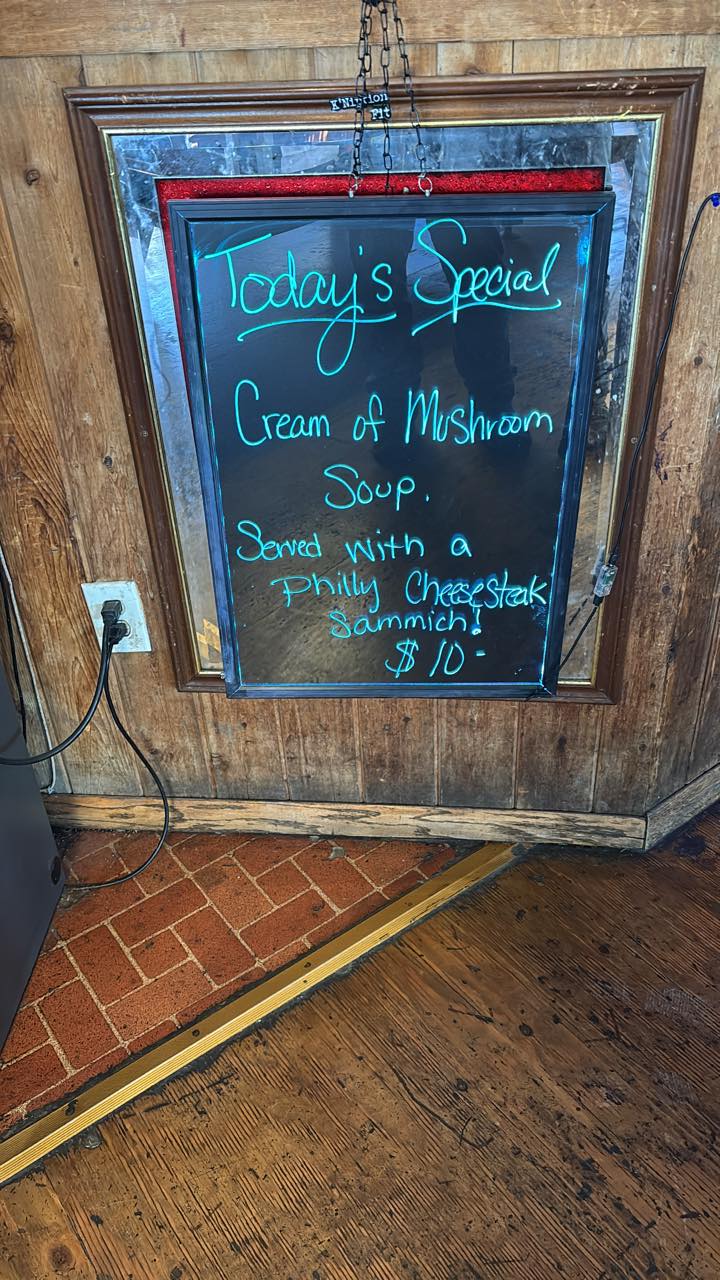 Today's Special
Cream of Mushroom
Soup.
Served with a
Philly Cheesesteak
Sammich!
$10-